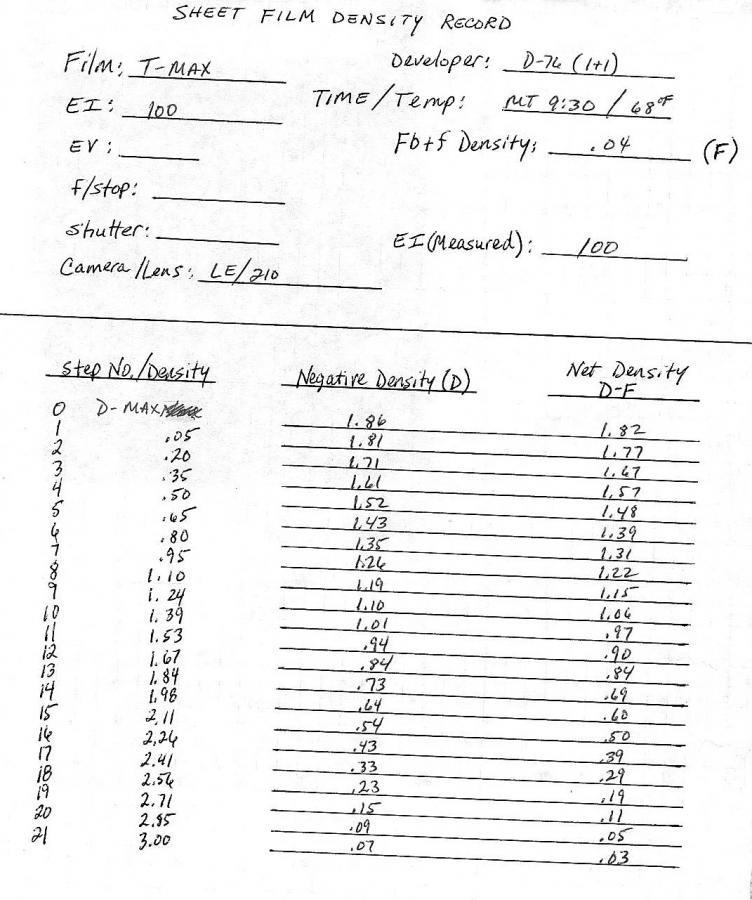 SHEET FILM DENSITY RECORD
Film: T-MAX Developer: D-76 (1+1)
EI: 100 TIME/Temp: MT 9:30 / 68°F
EV: Fb+f Density: .04 (F)
f/stop:
Shutter: EI (Measured): 100
Camera/Lens: LE/210
Step No./Density Negative Density (D) Net Density D-F
0 D-MAX 1.86 1.82
1 .05 1.81 1.77
2 .20 1.71 1.67
3 .35 1.61 1.57
4 .50 1.52 1.48
5 .65 1.43 1.39
6 .80 1.35 1.31
7 .95 1.26 1.22
8 1.10 1.19 1.15
9 1.24 1.10 1.06
10 1.39 1.01 .97
11 1.53 .94 .90
12 1.67 .84 .84
13 1.84 .73 .69
14 1.98 .64 .60
15 2.11 .54 .50
16 2.26 .43 .39
17 2.41 .33 .29
18 2.56 .23 .19
19 2.71 .15 .11
20 2.85 .09 .05
21 3.00 .07 .03